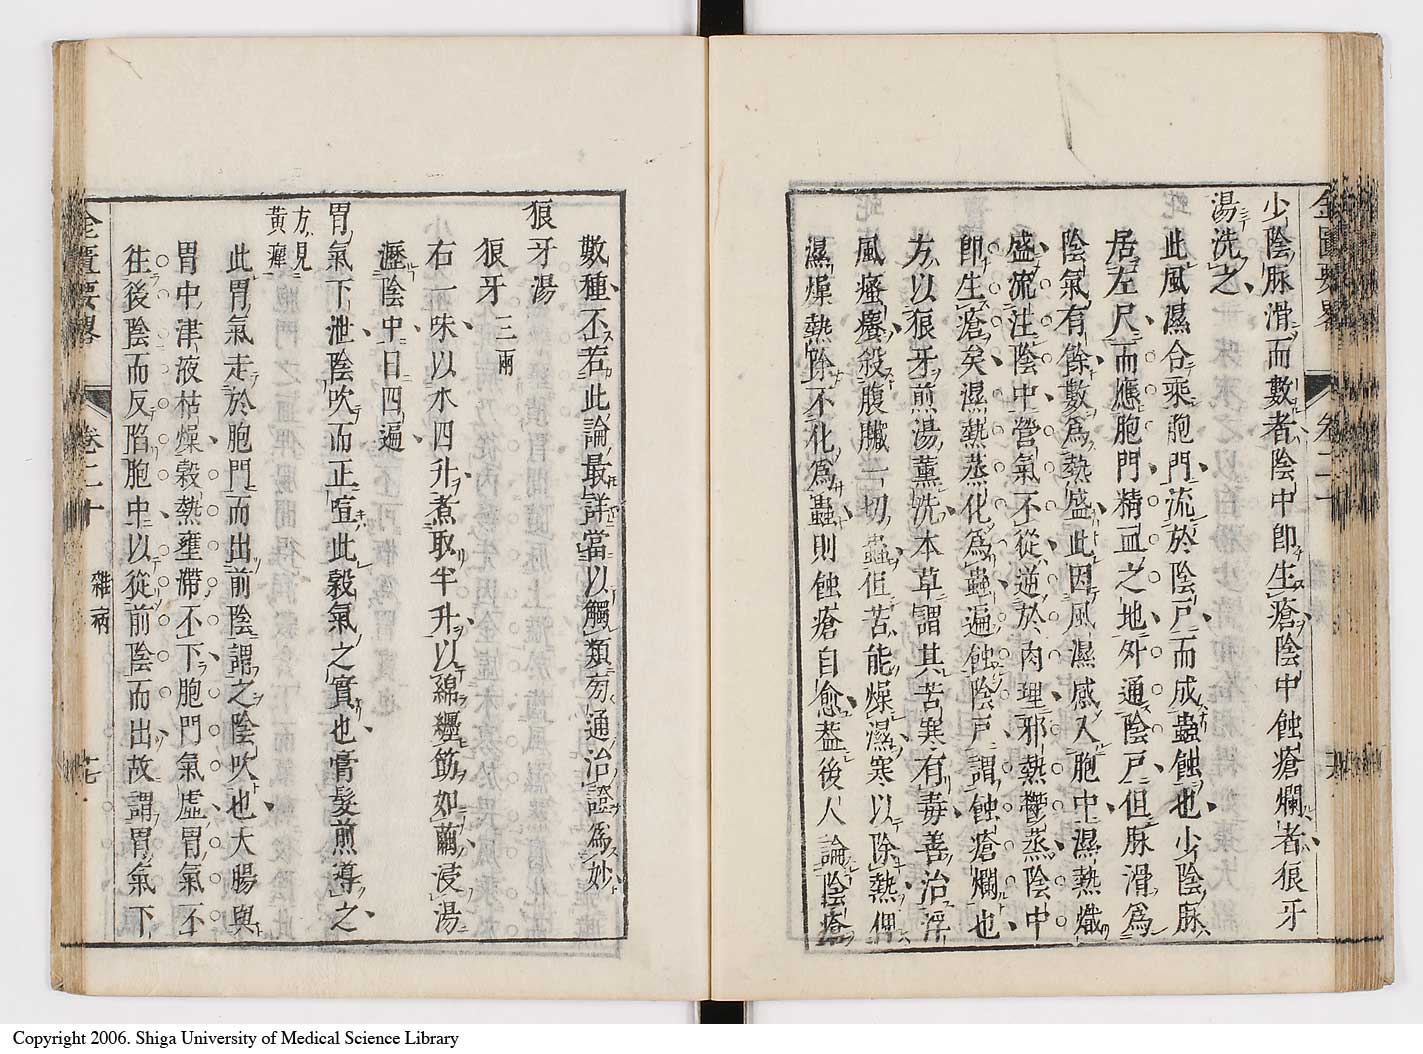 少陰脉滑而數者陰中卽生瘡陰中蝕瘡爛者狼牙
湯洗之
此風濕合乘胞門流於陰戶而成蟲蝕也少陰脉
居左尺而應胞門精血之地外通陰戶但脉滑爲
陰氣有餘數爲熱盛此因風濕感入胞中濕熱熾
盛流注陰中營氣不從逆於肉理邪熱鬱蒸陰中
卽生瘡矣濕熱蒸化爲蟲遍蝕陰戶謂蝕瘡爛也
方以狼牙煎湯薰洗本草謂其苦寒有毒善治浮
風瘙癢殺腹臟一切蟲但苦能燥濕寒以除熱俾
濕燥熱除不化爲蟲則蝕瘡自愈葢後人論陰瘡
金匱要畧 卷二十
數種不若此論最詳當以觸類旁通治證爲妙
狼牙湯
狼牙三兩
右一味以水四升煮取半升以綿纏筯如繭浸湯
瀝陰中日四遍
胃氣下泄陰吹而正喧此穀氣之實也膏髮煎導之
方見
黃癉
此胃氣走於胞門而出前陰謂之陰吹也大腸與
胃中津液枯燥穀熱壅帶不下胞門氣虛胃氣不
往後陰而反陷胞中以從前陰而出故謂胃氣下
金匱要畧 卷二十 雜病 十七
Copyright 2006. Shiga University of Medical Science Library